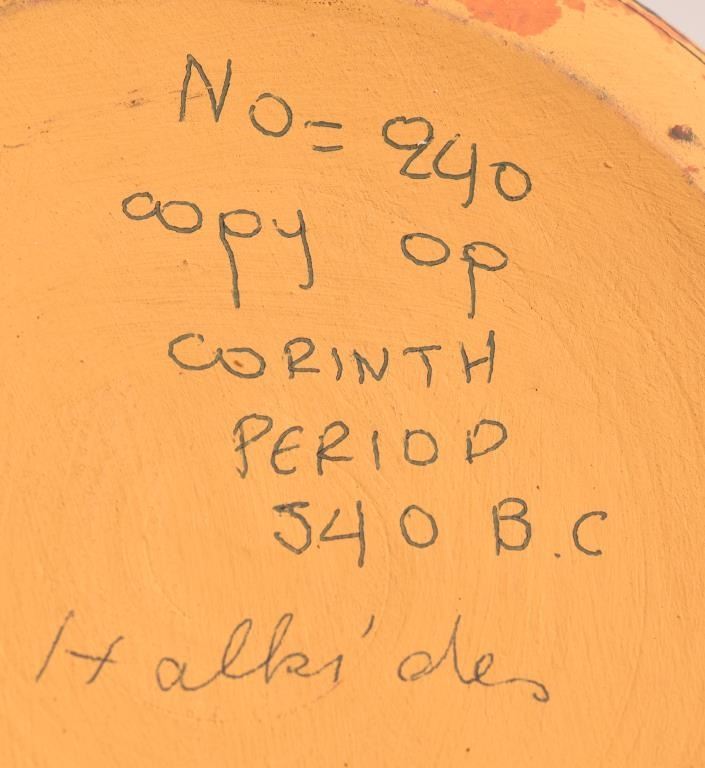 No= 240
copy op
CORINTH
PERIOD
540 B.C
Halki'des